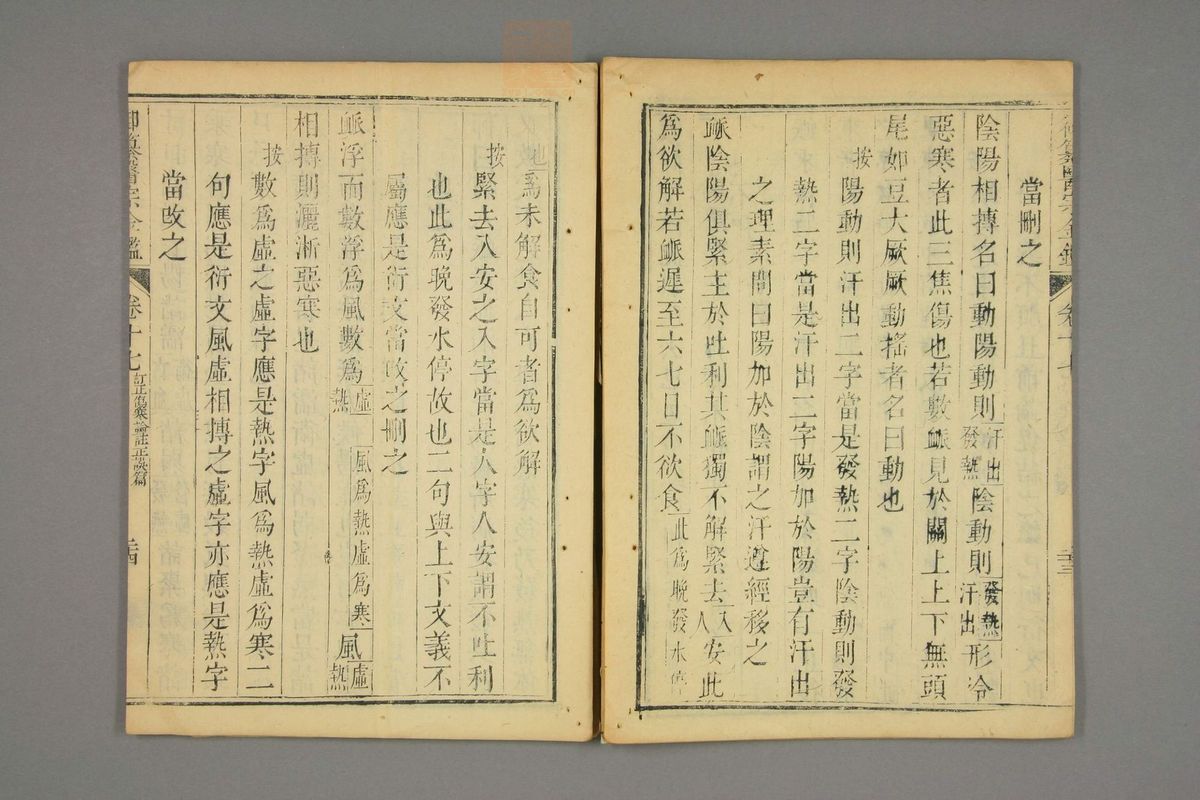 當刪之
陰陽相搏名曰動陽動則汗出發熱陰動則發熱汗出形冷
惡寒者此三焦傷也若數脈見於關上上下無頭
尾如豆大厥厥動搖者名曰動也
按陽動則汗出二字當是發熱二字陰動則發
熱二字當是汗出二字陽加於陽豈有汗出
之理素問曰陽加於陰謂之汗遵經移之
脈陰陽俱緊主於吐利其脈獨不解緊去入人安此
為欲解若脈遲至六七日不欲食此為晚發水停
故也為未解食自可者為欲解
按緊去入安之入字當是人字人安謂不吐利
也此為晚發水停故也二句與上下文義不
屬應是衍文當改之刪之
脈浮而數浮為風數為虛熱風為熱虛為寒風虛熱
相搏則灑淅惡寒也
按數為虛之虛字應是熱字風為熱虛為寒二
句應是衍文風虛相搏之虛字亦應是熱字
當改之
御纂醫宗金鑑 卷十七 訂正傷寒論註正誤篇 二十四